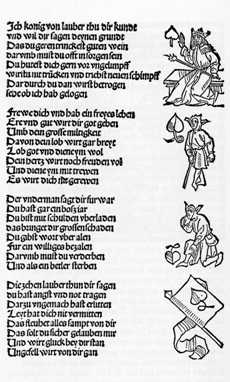 Ich konig von lauber thu dir kunde
vnd wil dir sagen deynen grunde
Das du geren trinckest guten wein
darumb must du offt in sorgen sein
Du hurest dich gern vor vngelimpff
wirst nu trucken vnd treibst neuen schimpff
Dar durch du dan wirst betrogen
jedoch ich hab gelogen
Frewe dich vnd hab ein freyes leben
Ere vnd gut wirt dir got geben
Umb dein grosse miltigkeit
Davon dein lob wirt gar breyt
Lob got vnd diene ym wol
Dein hertz wirt noch freuden vol
Und diene ym mit trewen
Es wirt dich nit gerewen
Der vnderman sagt dir fur war
Du hast gar ein boß iar
Du bist mit schulden vberladen
das bringet dir grossen schaden
Du gibst wort vber alen
Fur ein williges bezalen
Darumb must du verderben
Und als ein betler sterben
Die zehen lauber thun dir sagen
du hast angst vnd not tragen
Dar zu vngemach hast erliten
Leyt hat dich nit vermitten
Das steubet alles sampt von dir
Das solt du sicher gelauben mir
Und wirt gluck bey dir stan
Ungefell wirt von dir gan